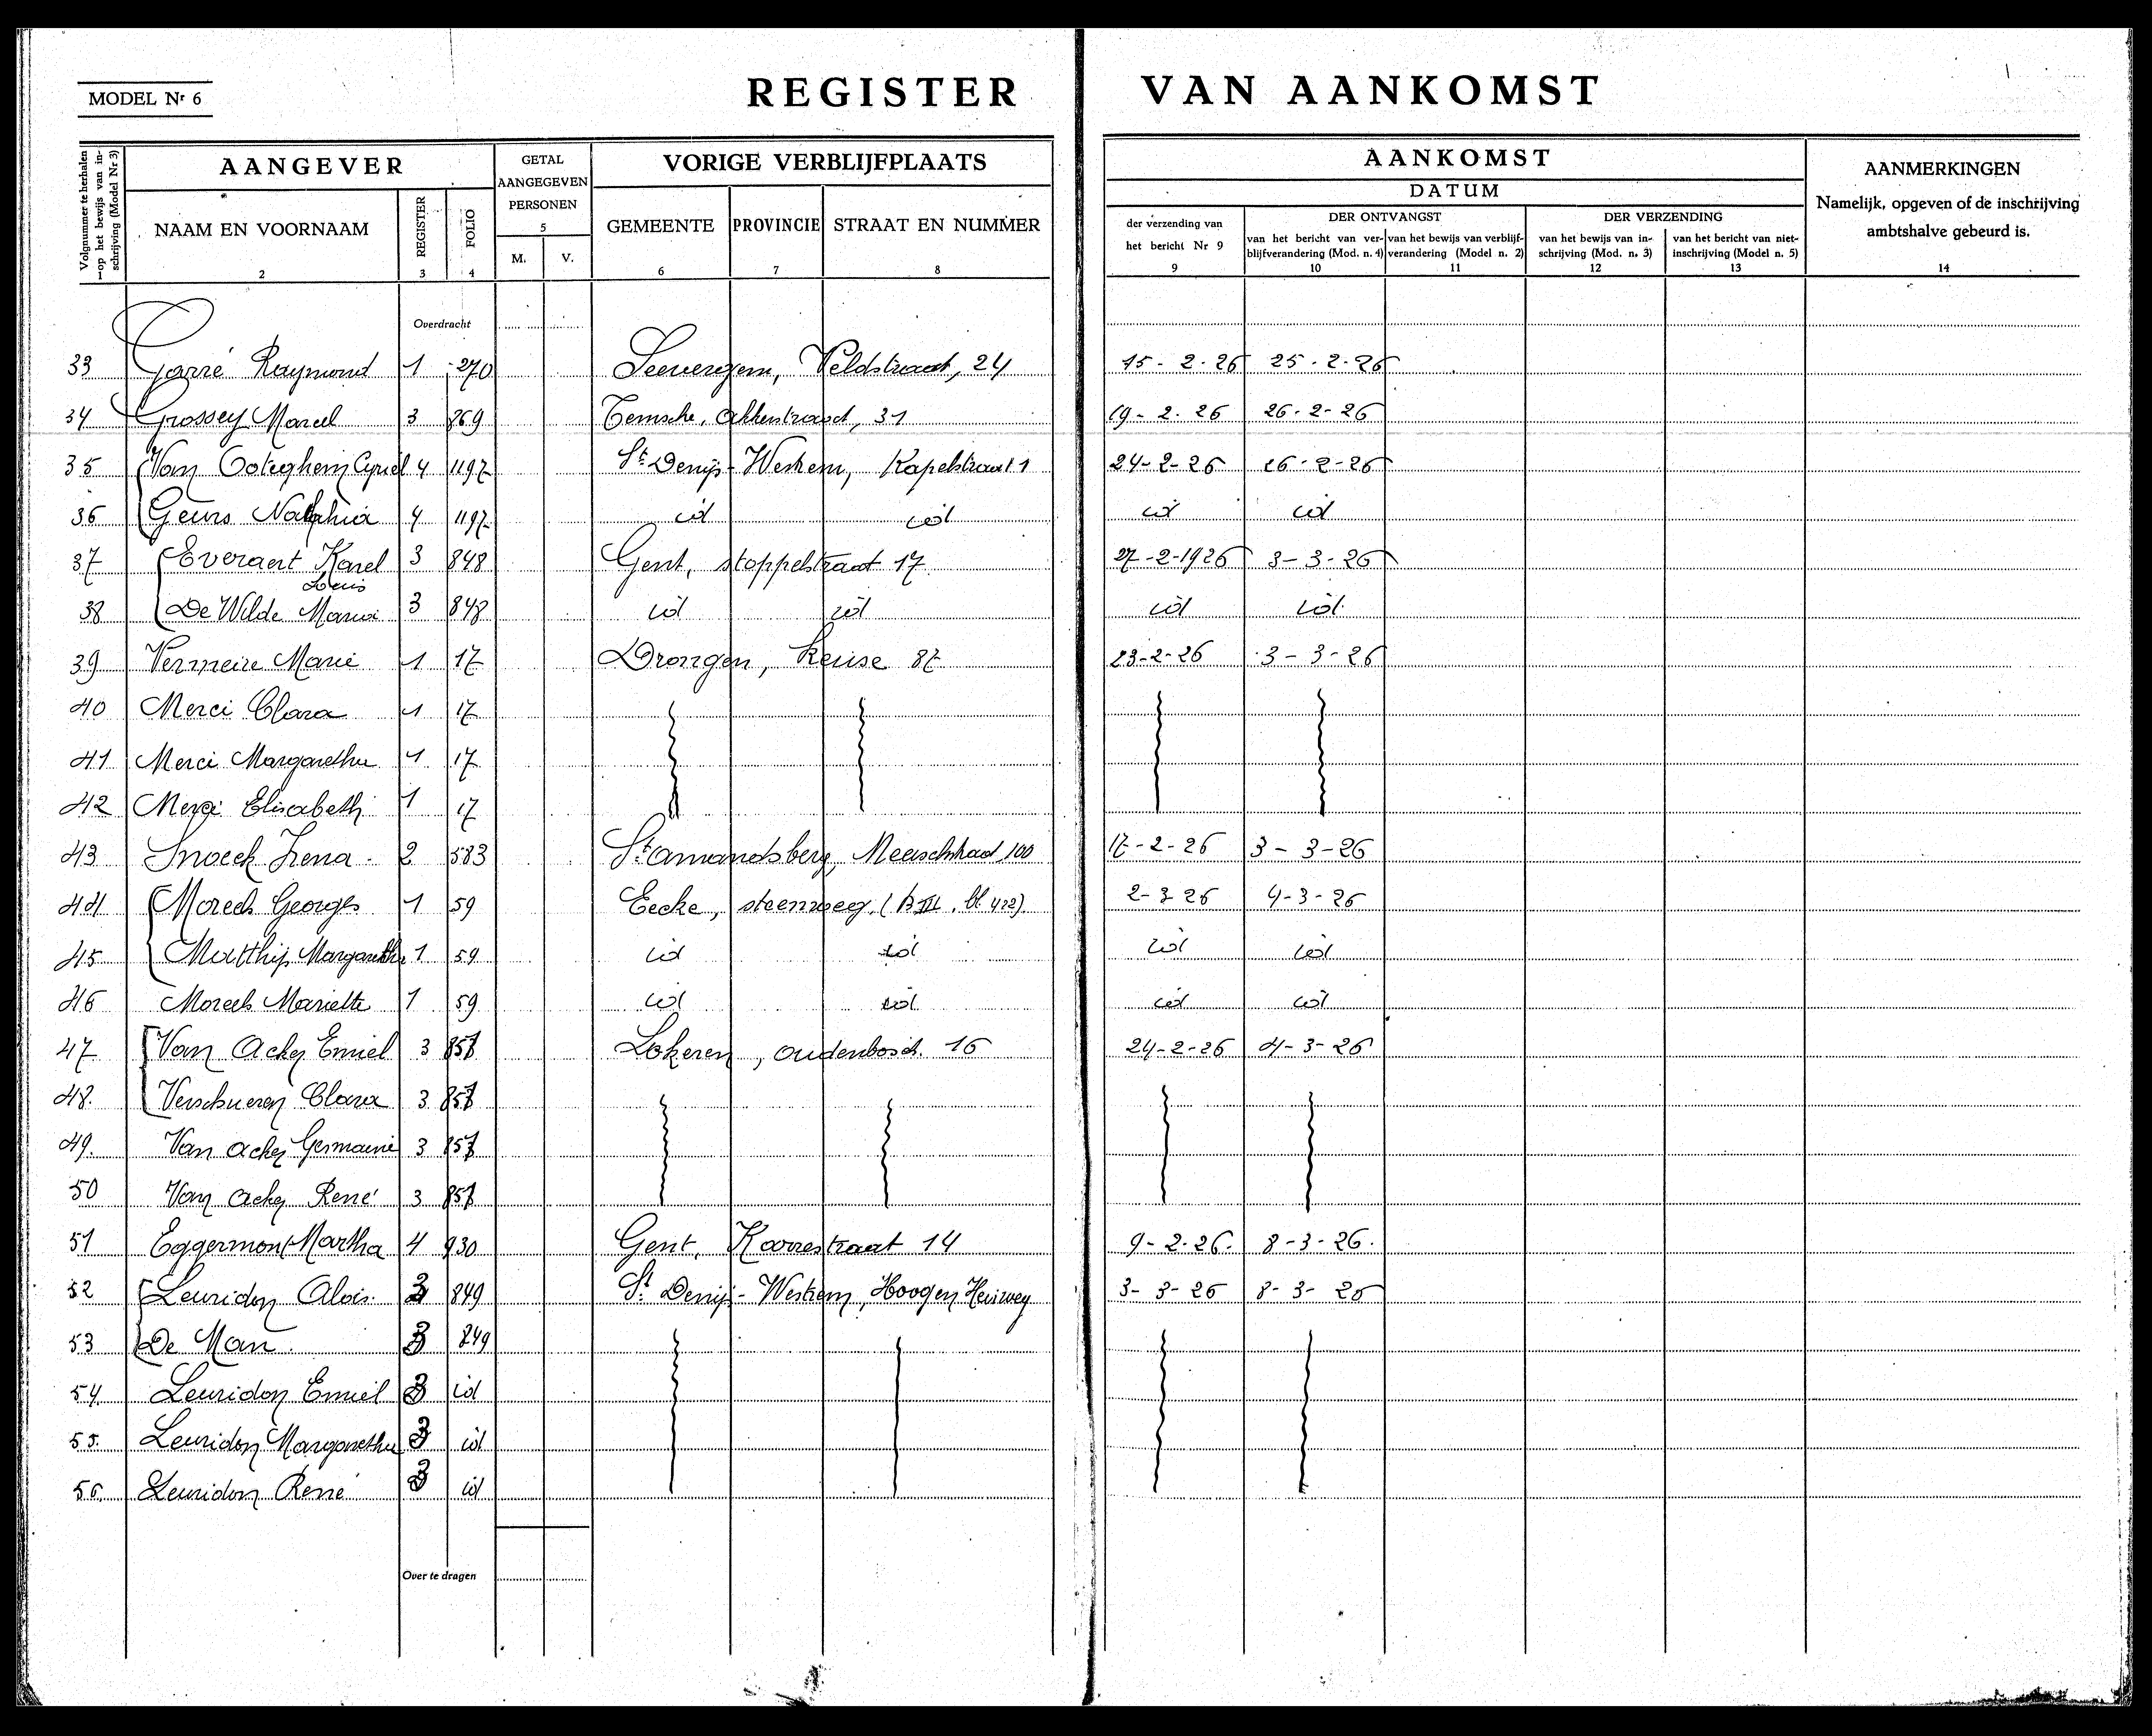 MODEL Nr 6
REGISTER VAN AANKOMST
Volgnummer te herhalen op het bewijs van inschrijving (Model Nr 3)
AANGEVER
NAAM EN VOORNAAM
2
REGISTER
3
FOLIO
4
GETAL
AANGEGEVEN
PERSONEN
5
M. V.
VORIGE VERBLIJFPLAATS
GEMEENTE PROVINCIE STRAAT EN NUMMER
6 7 8
AANKOMST
DATUM
der verzending van
het bericht Nr 9
9
DER ONTVANGST
van het bericht van verblijfverandering (Mod. n. 4)
10
van het bewijs van verblijfverandering (Model n. 2)
11
DER VERZENDING
van het bewijs van inschrijving (Mod. n. 3)
12
van het bericht van niet-inschrijving (Model n. 5)
13
AANMERKINGEN
Namelijk, opgeven of de inschrijving
ambtshalve gebeurd is.
14
Overdracht
33 Garré Raymond 1 270 Seevergem, Veldstraat, 24 15-2-26 25-2-26
34 Grossey Marcel 3 869 Temsche, Akkerstraat, 31 19-2-26 26-2-26
35 Van Ooteghem Cyriel 4 1197 St Denijs-Westrem, Kapelstraat 1 24-2-26 26-2-26
36 Geurs 4 1197 id id id id
37 Everaert Karel Louis 3 848 Gent, stoppelstraat 17 27-2-1926 3-3-26
38 De Wilde Maria 3 848 id id id id
39 Vermeire Marie 1 17 Drongen, Keuse 87 23-2-26 3-3-26
40 Merci Clara 1 17
41 Merci Margaretha 1 17
42 Merci Elisabeth 1 17
43 Snoeck Irena 2 583 St Amandsberg, Meerschstraat 100 17-2-26 3-3-26
44 Moreels Georges 1 59 Eecke, steenweg (B III, bl 422) 2-3-26 4-3-26
45 Matthijs Margaretha 1 59 id id id id
46 Moreels Mariette 1 59 id id id id
47 Van Acker Emiel 3 857 Lokeren, oudenbosch. 16 24-2-26 4-3-26
48. Verschueren Clara 3 857
49. Van Acker Germaine 3 857
50 Van Acker René 3 857
51 Eggermont Martha 4 930 Gent, Karrestraat 14 9-2-26. 8-3-26.
52 Leuridon Alois. 3 849 St Denijs-Westrem, Hoogen Heirweg 3-3-26 8-3-26
53 De Man. 3 849
54. Leuridon Emiel 3 id
55. Leuridon Margaretha 3 id
56. Leuridon René 3 id
Over te dragen